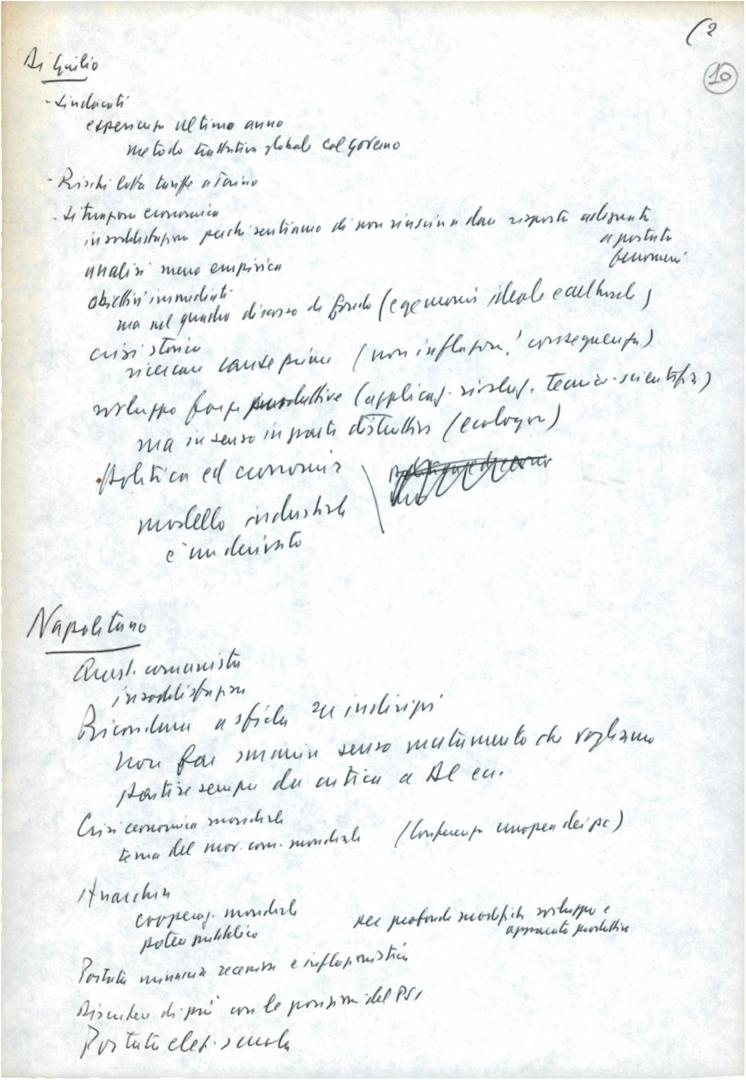 (2
10
Di Giulio
- Sindacati
esperienza ultimo anno
metodo trattativa globale col governo
- Rischi lotta tariffe a Torino
- Situazione economica
insoddisfazione perché sentiamo di non riuscire a dare risposta adeguata
a portata
fenomeni
analisi meno empirica
obiettivi immediati
ma nel quadro discorso di fondo (egemonia ideale e culturale)
crisi storica
ricercare cause prime (non inflazion.! conseguenza)
sviluppo forze produttive (applicaz. rivoluz. tecnico-scientifica)
ma in senso in parte distruttivo (ecologia)
Politica ed economia
modello industriale
è un derivato
Napolitano
Quest. comunista
insoddisfazione
Ricondurre a sfida su indirizzi
non far smarrire senso mutamento che vogliamo
partire sempre da critica a
Crisi economica mondiale
tema del mov. com. mondiale (Conferenza europea dei pc)
Anarchia
cooperaz. mondiale
potere pubblico
per profonde modifiche sviluppo e
apparato produttivo
Portata minaccia recessiva e inflazionistica
Discutere di più con le posizioni del PSI
Portata elez. scuola